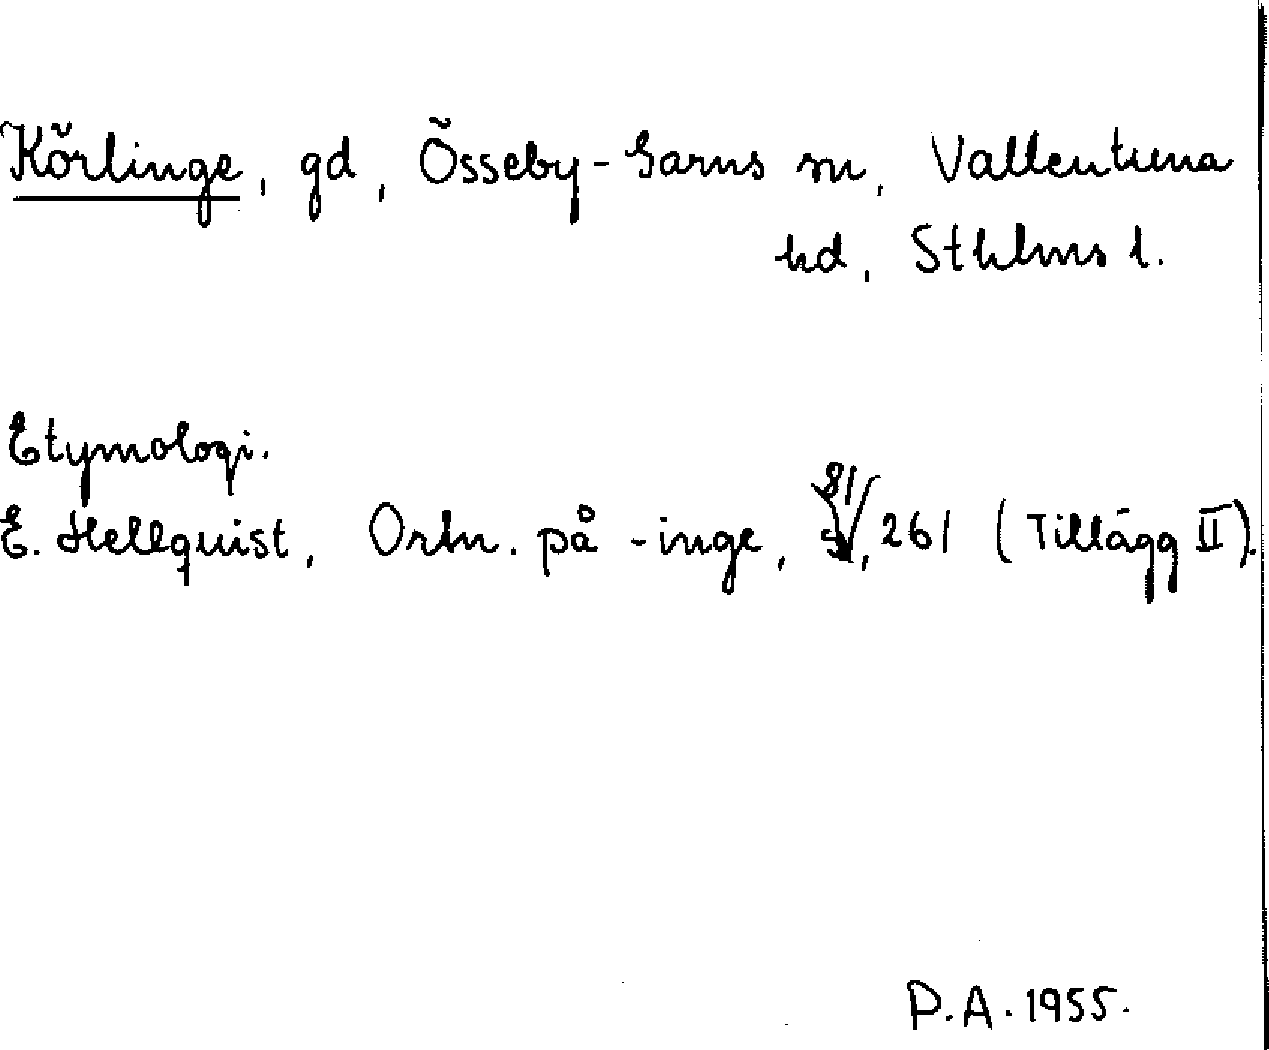 Körlinge, gd, Össeby-Garns sn, Vallentuna
hd, Sthlms l.
Etymologi.
E. Hellquist, Ortn. på -inge, 81, 261 (Tillägg II).
P.A. 1955.